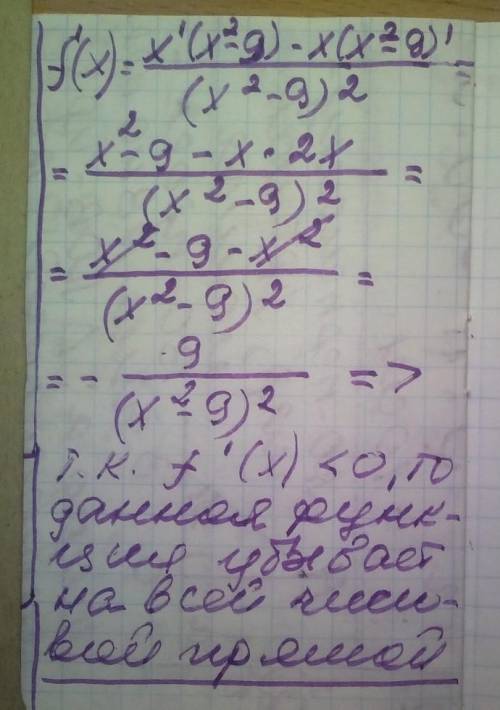 f'(x) = x'(x²-9) - x(x²-9)' / (x²-9)² =
= x²-9 - x·2x / (x²-9)² =
= x² - 9 - x² / (x²-9)² =
= - 9 / (x²-9)² =>
т.к. f'(x) < 0, то
данная функ-
ция убывает
на всей число-
вой прямой